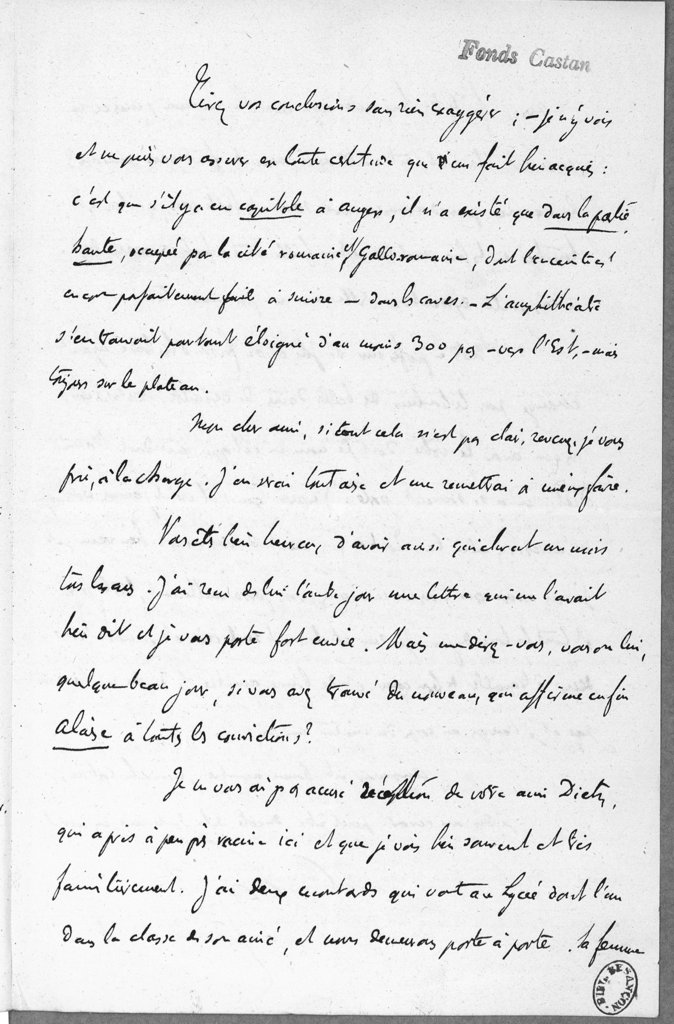 Fonds Castan
Tirez vos conclusions sans rien exagérer ; – je n'y vois
et ne puis vous assurer en toute certitude que d'un fait bien acquis :
c'est que s'il y a eu capitole à angers, il n'a existé que dans la partie
haute, occupée par la cité romaine, Gallo-romaine, dont l'enceinte est
encore parfaitement facile à suivre – dans les caves. – L'amphithéâtre
s'en trouvait partant éloigné d'au moins 300 pas – vers l'Est, – mais
toujours sur le plateau.
Mon cher ami, si tout cela n'est pas clair, revenez, je vous
prie, à la charge. J'en serai tout aise et me remettrai à
Vous êtes bien heureux, d'avoir aussi
J'ai reçu de lui l'autre jour une lettre qui me l'avait
bien dit et je vous porte fort envie. Mais me direz-vous, vous ou lui,
quelque beau jour, si vous avez trouvé du nouveau, qui affirme enfin
Alaise à toutes les convictions ?
Je ne vous ai pas accusé réception de votre ami Dietz,
qui a pris à peu près racine ici et que je vois bien souvent et très
familièrement. J'ai deux moutards qui vont au Lycée dont l'un
dans la classe de son ainé, et nous demeurons porte à porte. Sa femme
BIBL. DE BESANÇON